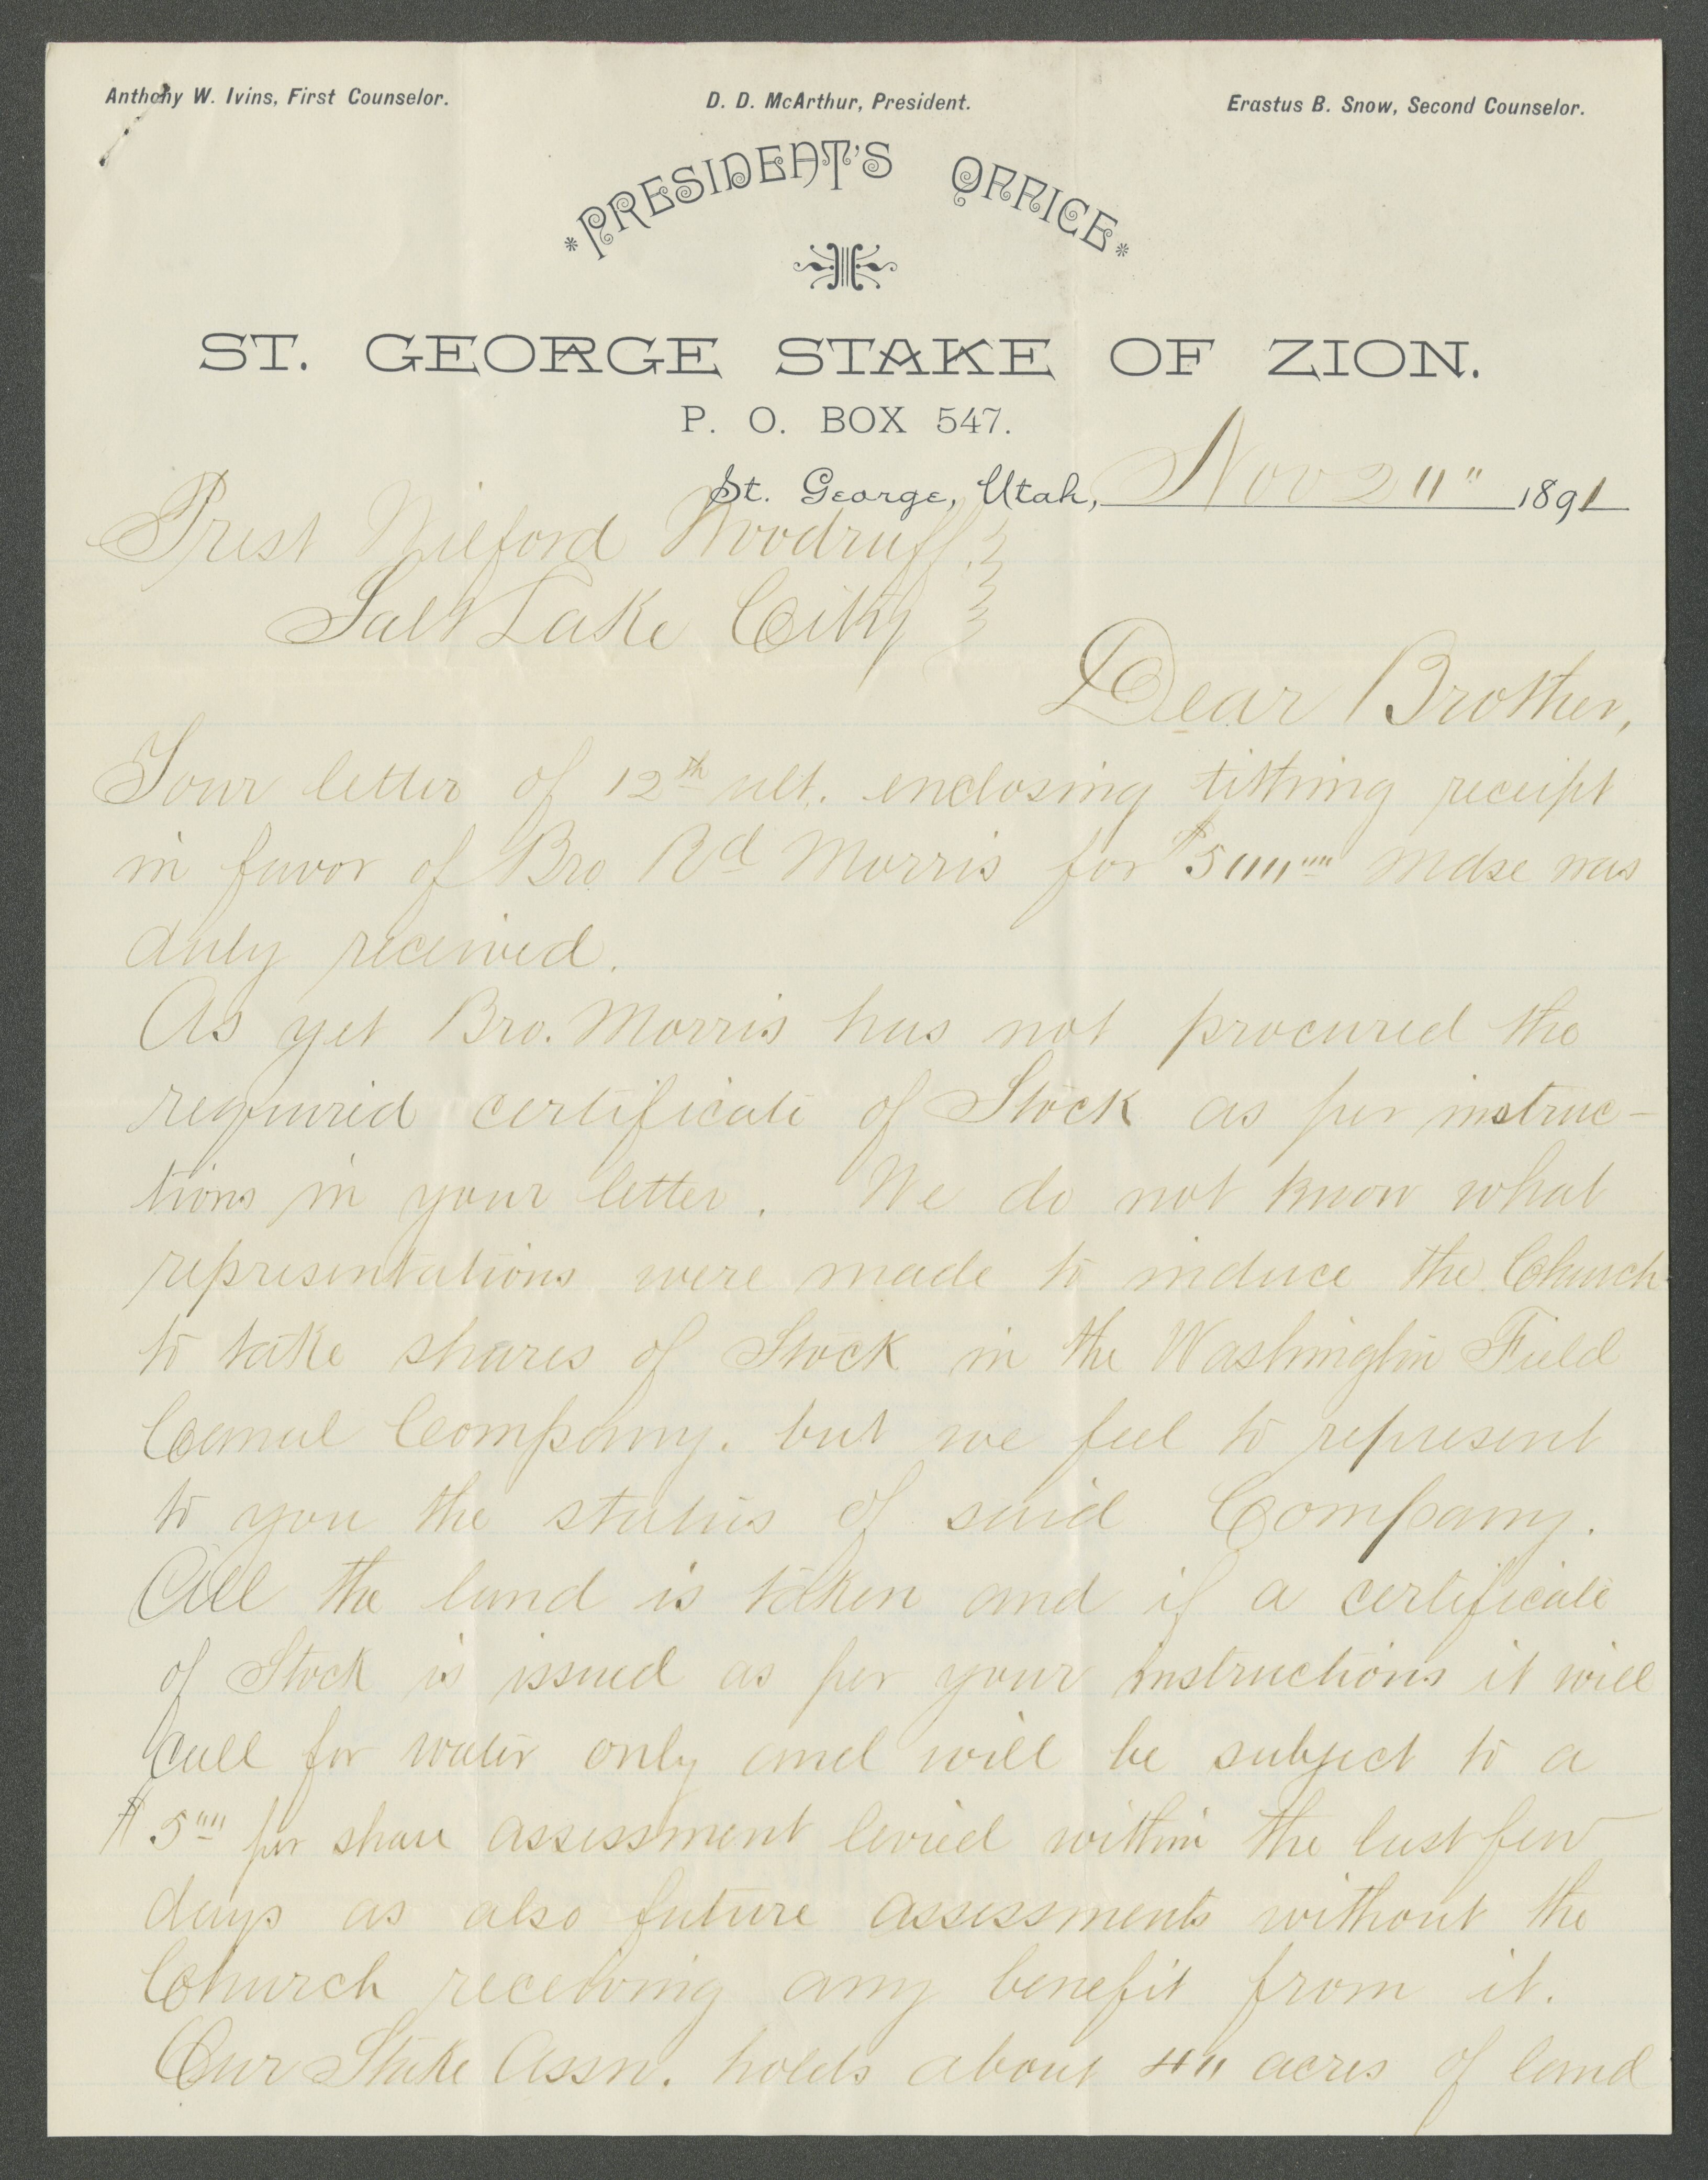 Anthony W. Ivins, First Counselor.
D. D. McArthur, President.
Erastus B. Snow, Second Counselor.
PRESIDENT'S OFFICE
ST. GEORGE STAKE OF ZION.
P. O. BOX 547.
St. George, Utah, Nov 2"" 1891
Prest Wilford Woodruff
Salt Lake City
Dear Brother,
Your letter of 12th ult. enclosing tithing receipt
in favor of Bro Rd Morris for $5"""" Mdse was
duly received.
As yet Bro. Morris has not procured the
required certificate of Stock as per instruc-
tions in your letter. We do not know what
representations were made to induce the Church
to take shares of Stock in the Washington Field
Canal Company. but we feel to represent
to you the status of said Company.
All the land is taken and if a certificate
of Stock is issued as per your instructions it will
call for water only and will be subject to a
$5"" per share assessment levied within the last few
days as also future assessments without the
Church receiving any benefit from it.
Our Stake Assn. holds about 4" acres of land